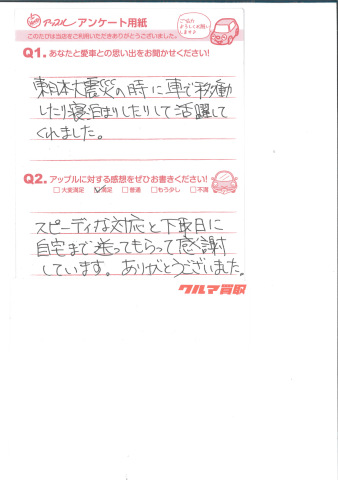 アップル アンケート用紙
このたびは当店をご利用いただきありがとうございました。
ご協力
よろしくお願い
します♪
Q1. あなたと愛車との思い出をお聞かせください!
東日本大震災の時に車で移動
したり寝泊まりしたりして活躍して
くれました。
Q2. アップルに対する感想をぜひお書きください!
□大変満足 ☑満足 □普通 □もう少し □不満
スピーディな対応と下取日に
自宅まで送ってもらって感謝
しています。ありがとうございました。
クルマ買取